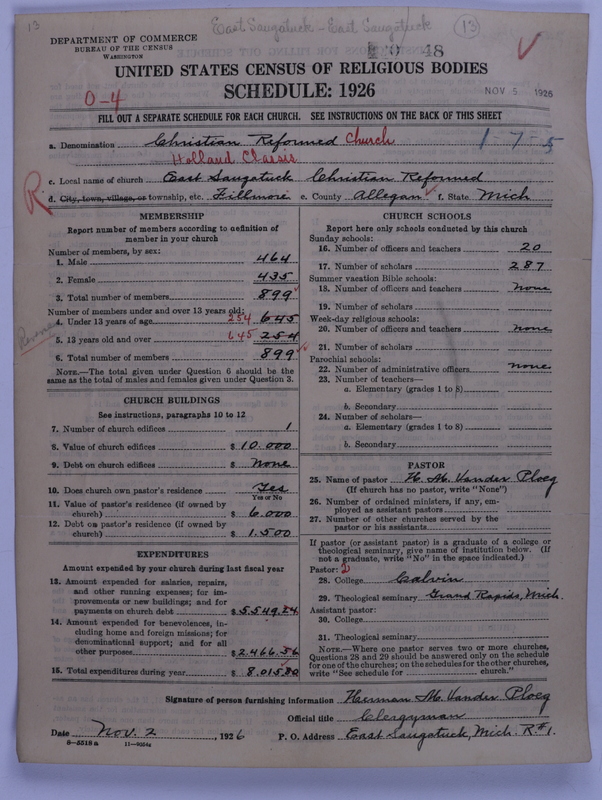 13
East Saugatuck - East Saugatuck
13
DEPARTMENT OF COMMERCE
BUREAU OF THE CENSUS
WASHINGTON
48
UNITED STATES CENSUS OF RELIGIOUS BODIES
SCHEDULE: 1926
NOV 5 1926
0-4
FILL OUT A SEPARATE SCHEDULE FOR EACH CHURCH. SEE INSTRUCTIONS ON THE BACK OF THIS SHEET
a. Denomination Christian Reformed Church 1-7-5
Holland Classis
c. Local name of church East Saugatuck Christian Reformed
R
d. City, town, village, or township, etc. Fillmore e. County Allegan f. State Mich
MEMBERSHIP
Report number of members according to definition of
member in your church
Number of members, by sex:
1. Male 464
2. Female 435
3. Total number of members 899
Number of members under and over 13 years old:
4. Under 13 years of age 254 645
Reverse
5. 13 years old and over 645 254
6. Total number of members 899
NOTE.—The total given under Question 6 should be the
same as the total of males and females given under Question 3.
CHURCH BUILDINGS
See instructions, paragraphs 10 to 12
7. Number of church edifices 1
8. Value of church edifices $ 10.000
9. Debt on church edifices $ None
10. Does church own pastor's residence Yes
Yes or No
11. Value of pastor's residence (if owned by
church) $ 6.000
12. Debt on pastor's residence (if owned by
church) $ 1.500
EXPENDITURES
Amount expended by your church during last fiscal year
13. Amount expended for salaries, repairs,
and other running expenses; for im-
provements or new buildings; and for
payments on church debt $ 5.549.24
14. Amount expended for benevolences, in-
cluding home and foreign missions; for
denominational support; and for all
other purposes $ 2.466.56
15. Total expenditures during year $ 8.015.80
CHURCH SCHOOLS
Report here only schools conducted by this church
Sunday schools:
16. Number of officers and teachers 20
17. Number of scholars 287
Summer vacation Bible schools:
18. Number of officers and teachers None
19. Number of scholars
Week-day religious schools:
20. Number of officers and teachers None
21. Number of scholars
Parochial schools:
22. Number of administrative officers None
23. Number of teachers—
a. Elementary (grades 1 to 8)
b. Secondary
24. Number of scholars—
a. Elementary (grades 1 to 8)
b. Secondary
PASTOR
25. Name of pastor H. M. Vander Ploeg
(If church has no pastor, write "None")
26. Number of ordained ministers, if any, em-
ployed as assistant pastors
27. Number of other churches served by the
pastor or his assistants
If pastor (or assistant pastor) is a graduate of a college or
theological seminary, give name of institution below. (If
not a graduate, write "No" in the space indicated.)
Pastor: 2
28. College Calvin
29. Theological seminary Grand Rapids, Mich.
Assistant pastor:
30. College
31. Theological seminary
NOTE.—Where one pastor serves two or more churches,
Questions 28 and 29 should be answered only on the schedule
for one of the churches; on the schedules for the other churches,
write "See schedule for church."
Signature of person furnishing information Herman M. Vander Ploeg
Official title Clergyman
Date Nov. 2, 1926 P. O. Address East Saugatuck, Mich. R#1.
8-5518a 11-9054a